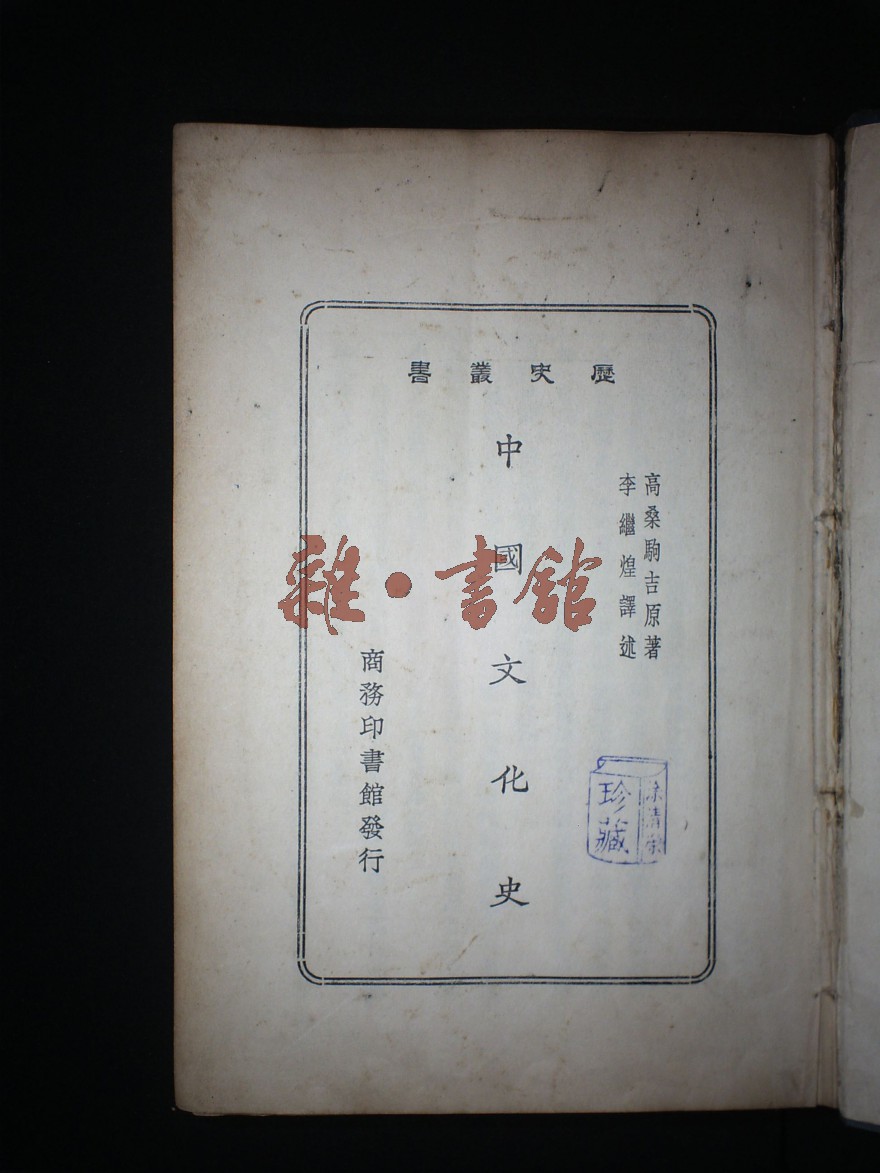 歷史叢書
高桑駒吉原著
李繼煌譯述
中國文化史
商務印書館發行
雜·書館
珍藏